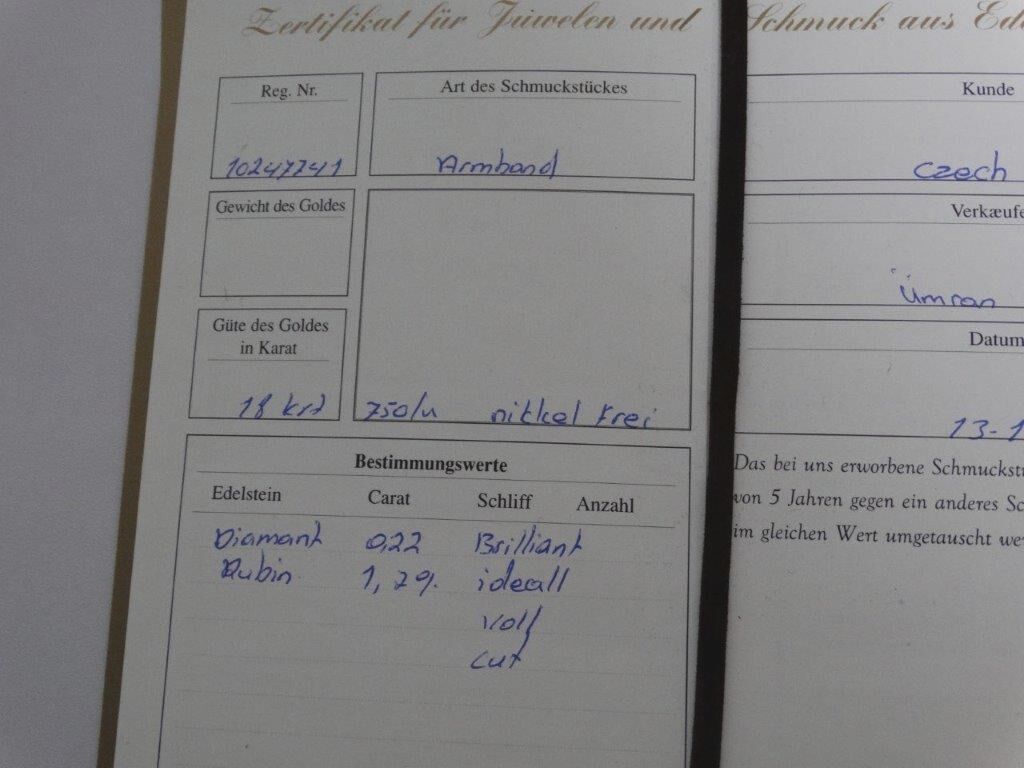 Zertifikat für Juwelen und Schmuck aus Ede
Reg. Nr.
10247741
Art des Schmuckstückes
Armband
Gewicht des Goldes
Güte des Goldes
in Karat
18 krt
750/u nikkel Frei
Bestimmungswerte
Edelstein Carat Schliff Anzahl
Diamant 0,22 Brilliant
Rubin 1,29. ideall
Voll
cut
Kunde
Czech
Verkæufe
Ümran
Datum
13-1
Das bei uns erworbene Schmuckst
von 5 Jahren gegen ein anderes Sc
im gleichen Wert umgetauscht we